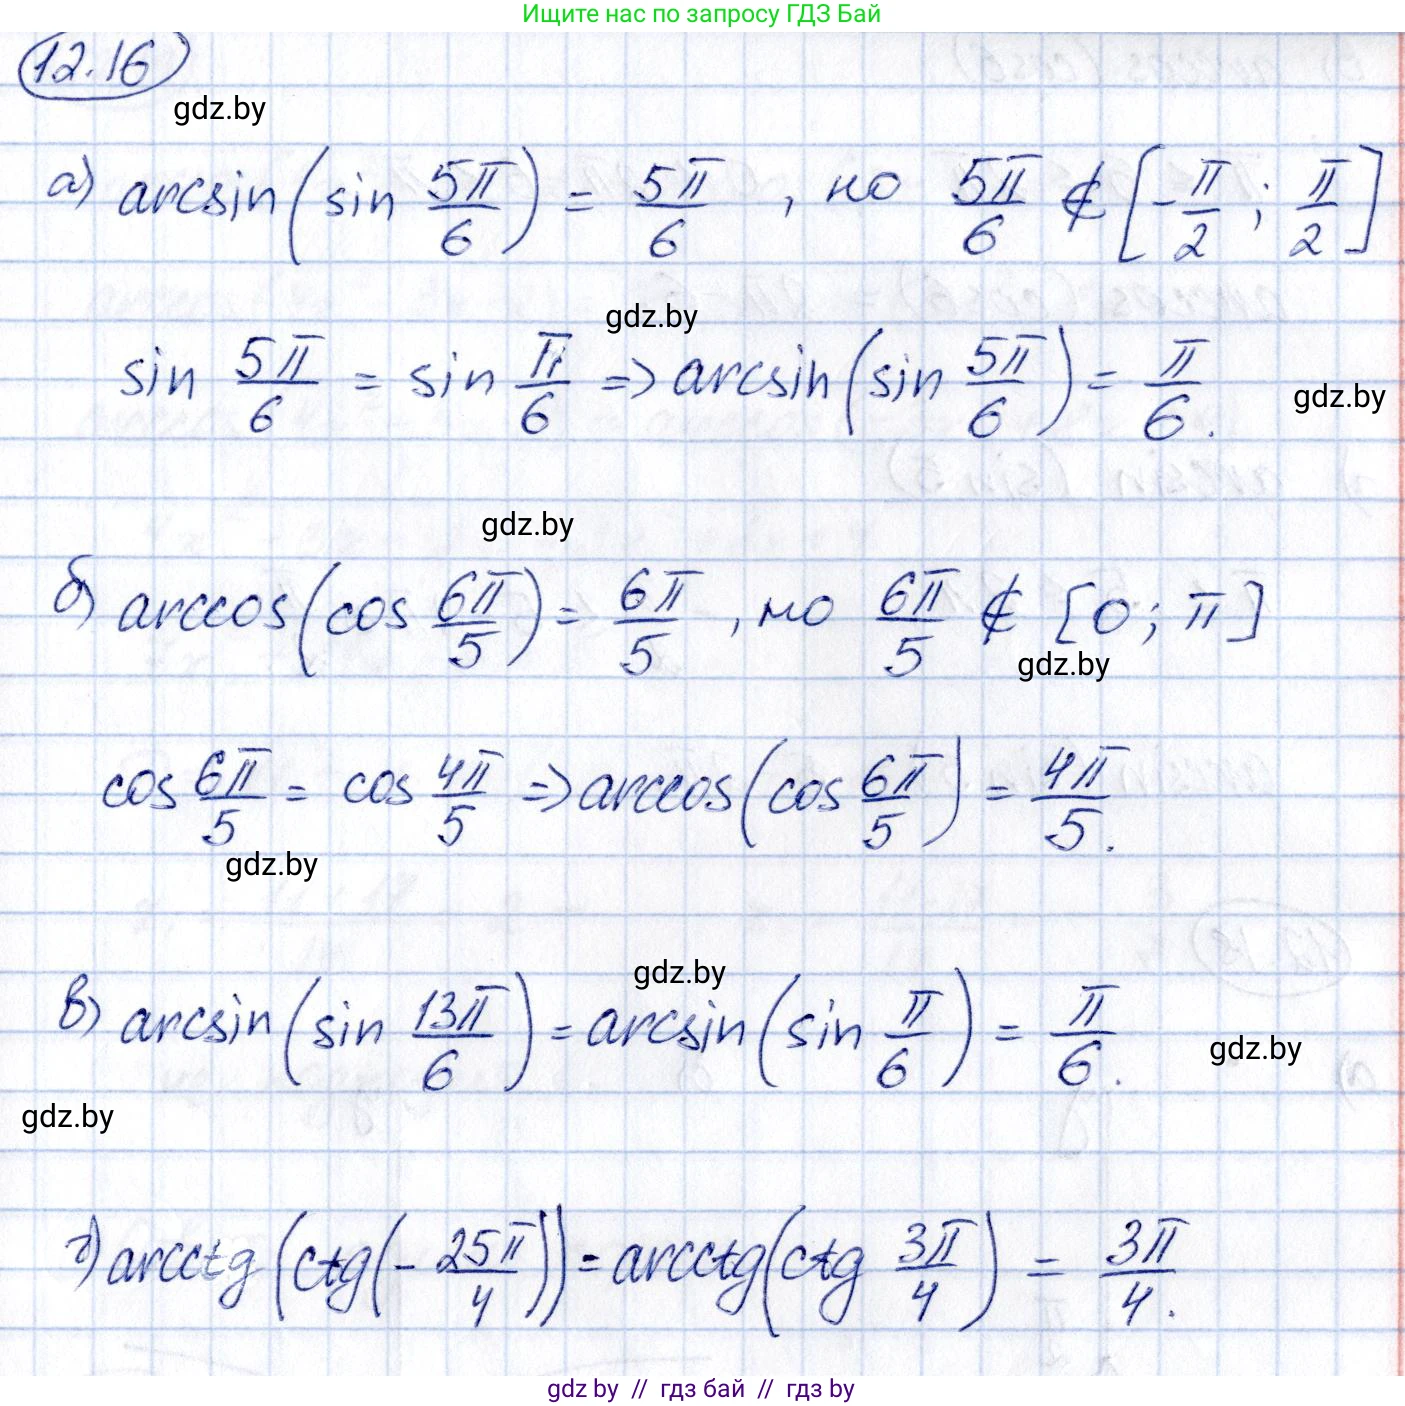 Ищите нас по запросу ГДЗ Бай
12.16
gdz.by
а) arcsin(sin 5π/6) = 5π/6 , но 5π/6 ∉ [-π/2 ; π/2]
gdz.by
sin 5π/6 = sin π/6 => arcsin(sin 5π/6) = π/6.
gdz.by
gdz.by
б) arccos(cos 6π/5) = 6π/5 , но 6π/5 ∉ [0; π]
gdz.by
cos 6π/5 = cos 4π/5 => arccos(cos 6π/5) = 4π/5.
gdz.by
gdz.by
в) arcsin(sin 13π/6) = arcsin(sin π/6) = π/6.
gdz.by
gdz.by
г) arcctg(ctg(- 25π/4)) = arcctg(ctg 3π/4) = 3π/4.
gdz.by // гдз бай // гдз by